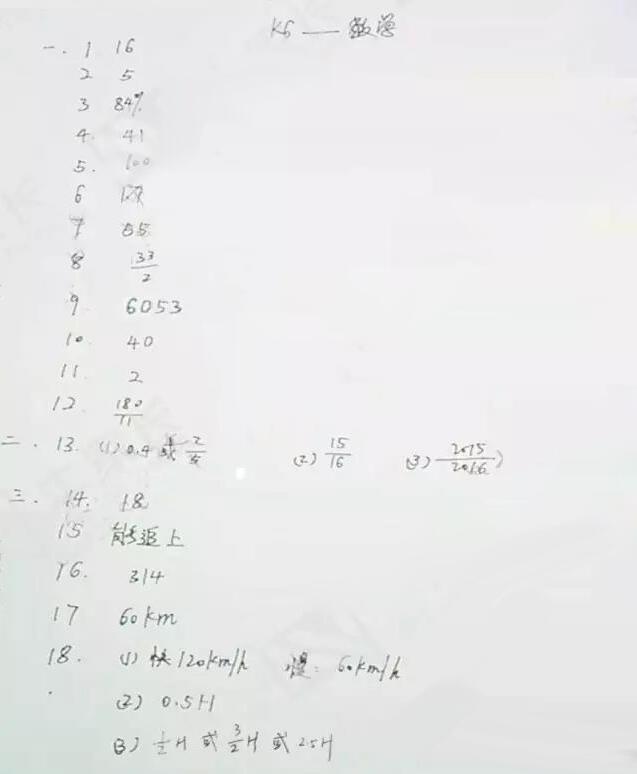 K6 — 数学
一. 1 16
2 5
3 84%
4. 41
5. 100
6
7 55
8 33/2
9. 6053
10. 40
11. 2
12. 180/11
二. 13. (1) 0.4 或 2/5 (2) 15/16 (3) 2015/2016
三. 14. 18
15 能追上
16. 314
17 60km
18. (1) 快120km/h 慢: 60km/h
(2) 0.5H
(3) 1/2H 或 3/2H 或 2.5H